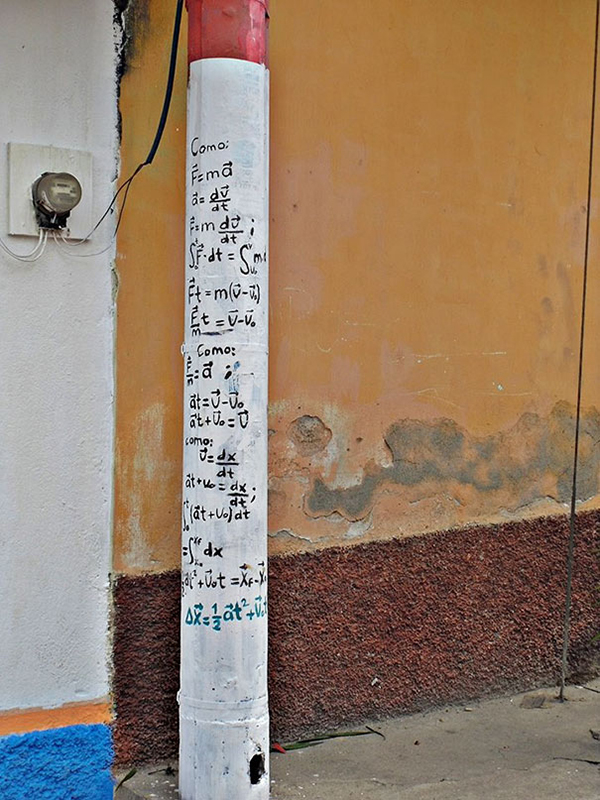 Como:
F⃗=ma⃗
a⃗=dv⃗/dt
F⃗=m dv⃗/dt ;
∫F⃗·dt = ∫ m
F⃗t = m(v⃗-v⃗₀)
F⃗/m t = v⃗-v⃗₀
Como:
F⃗/m=a⃗ ;
a⃗t=v⃗-v⃗₀
a⃗t+v⃗₀=v⃗
como:
v⃗=dx⃗/dt
a⃗t+v₀=dx⃗/dt;
∫(a⃗t+v₀)dt
=∫dx
a⃗t²+v⃗₀t=x⃗F-x⃗
Δx⃗=½a⃗t²+v⃗₀t